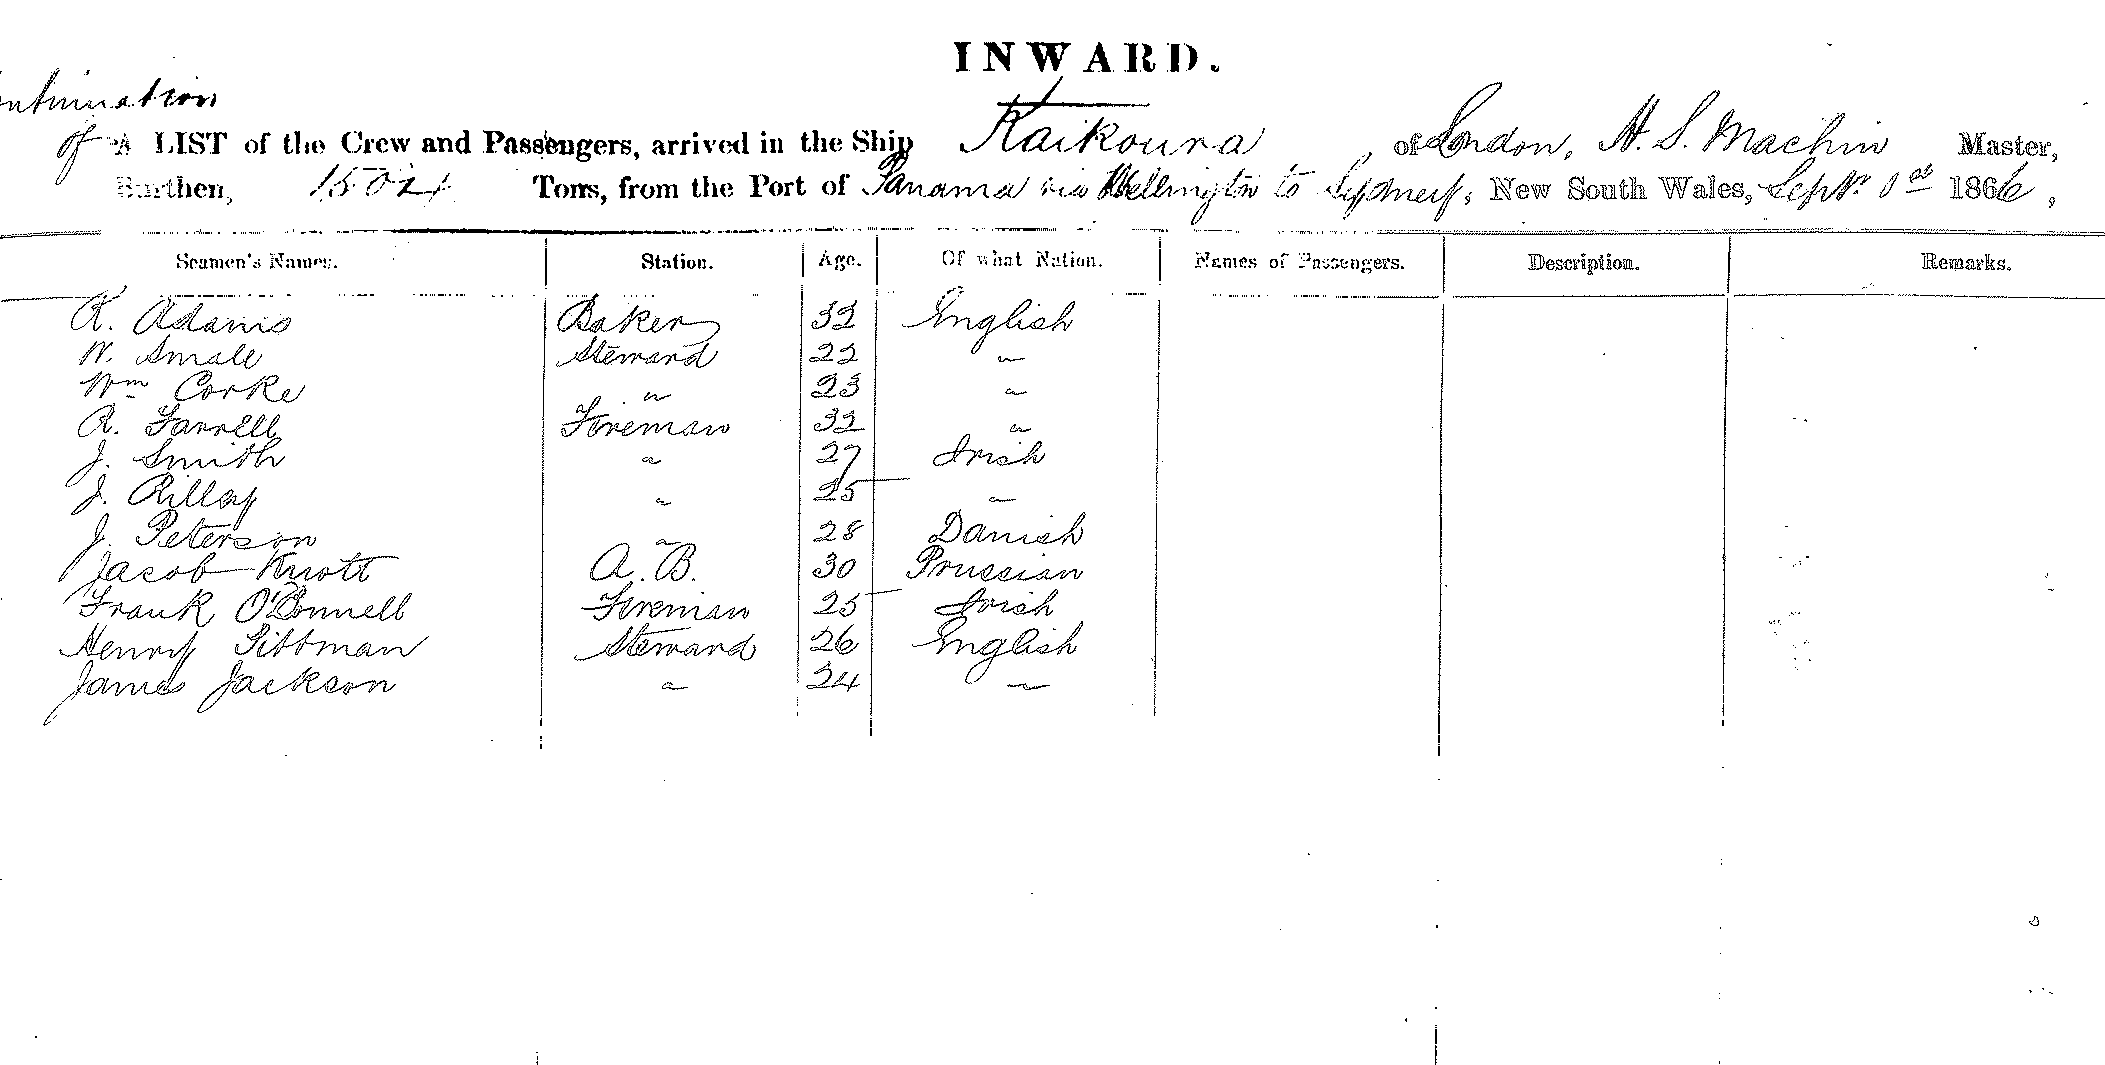 INWARD.
Continuation
of A LIST of the Crew and Passengers, arrived in the Ship Kaikoura, of London, H. S. Machin Master,
Burthen, 1501 Tons, from the Port of Panama via Wellington to Sydney, New South Wales, Septr. 1st 1866,
Seamen's Names. Station. Age. Of what Nation. Names of Passengers. Description. Remarks.
R. Adams Baker 32 English
W. Smale Steward 22 "
Wm Corke " 23 "
R. Farrell Fireman 32 "
J. Smith " 27 Irish
J. Rilley " 25 "
J. Peterson " 28 Danish
Jacob Knott A.B. 30 Prussian
Frank O'Donnell Fireman 25 Irish
Henry Tittman Steward 26 English
James Jackson " 24 "